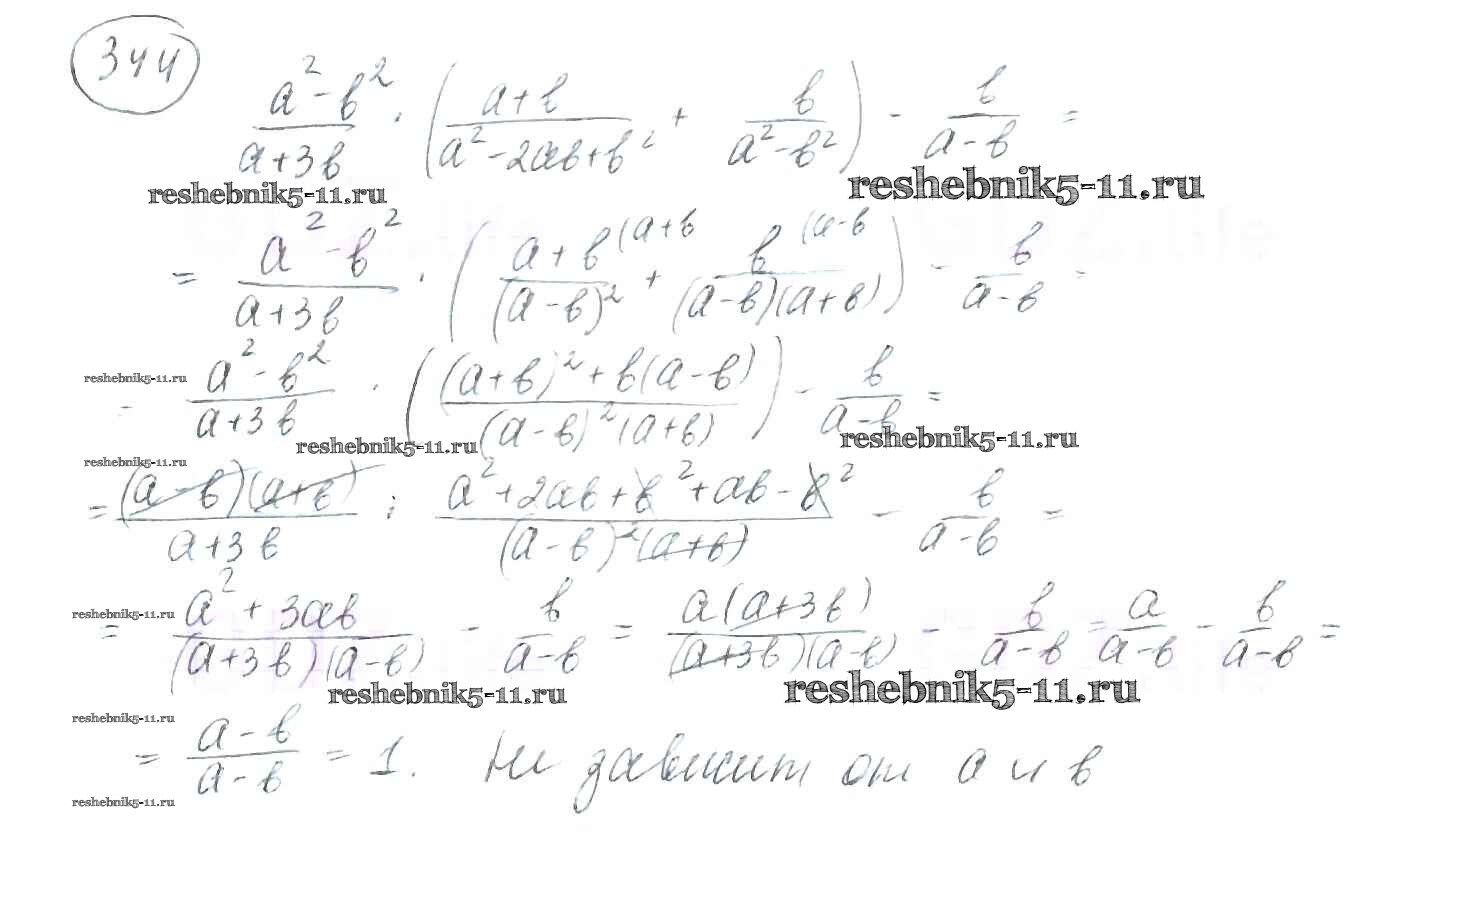 344
(a² - b²)/(a + 3b) · ((a + b)/(a² - 2ab + b²) + b/(a² - b²)) - b/(a - b) =
reshebnik5-11.ru reshebnik5-11.ru
= (a² - b²)/(a + 3b) · ((a + b (a + b)/(a - b)² + b (a - b)/((a - b)(a + b))) - b/(a - b) =
reshebnik5-11.ru
- (a² - b²)/(a + 3b) · (((a + b)² + b(a - b))/((a - b)²(a + b))) - b/(a - b) =
reshebnik5-11.ru reshebnik5-11.ru
reshebnik5-11.ru
= ((a - b)(a + b))/(a + 3b) : (a² + 2ab + b² + ab - b²)/((a - b)²(a + b)) - b/(a - b) =
reshebnik5-11.ru
= (a² + 3ab)/((a + 3b)(a - b)) - b/(a - b) = (a(a + 3b))/((a + 3b)(a - b)) - b/(a - b) = a/(a - b) - b/(a - b) =
reshebnik5-11.ru reshebnik5-11.ru
reshebnik5-11.ru
= (a - b)/(a - b) = 1. Не зависит от a и b
reshebnik5-11.ru